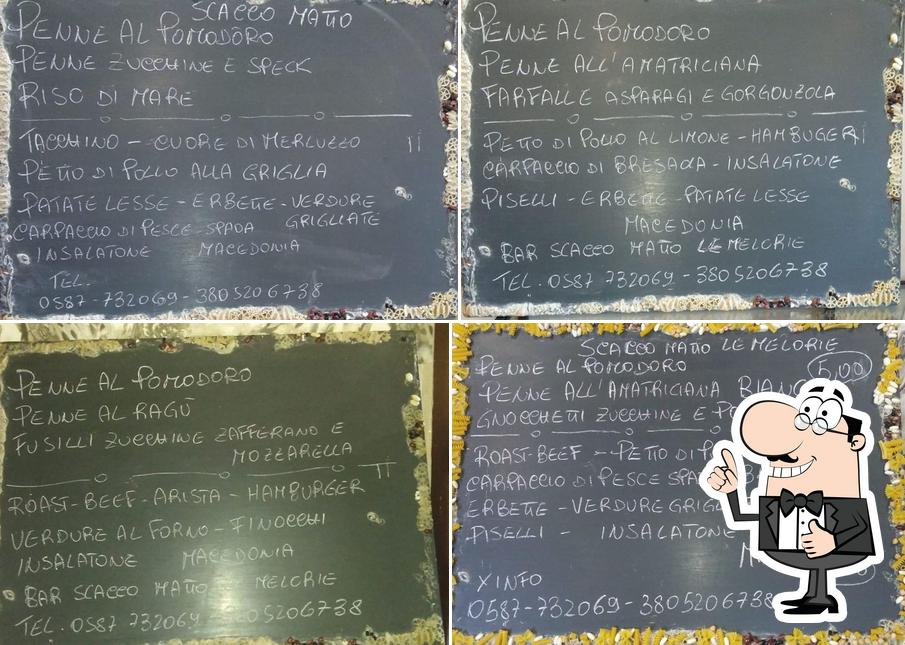 SCACCO MATTO
PENNE AL POMODORO
PENNE ZUCCHINE E SPECK
RISO DI MARE
TACCHINO - CUORE DI MERLUZZO
PETTO DI POLLO ALLA GRIGLIA
PATATE LESSE - ERBETTE - VERDURE
GRIGLIATE
CARPACCIO DI PESCE SPADA
INSALATONE MACEDONIA
TEL.
0587-732069-3805206738
PENNE AL POMODORO
PENNE ALL'AMATRICIANA
FARFALLE ASPARAGI E GORGONZOLA
PETTO DI POLLO AL LIMONE - HAMBUGER
CARPACCIO DI BRESAOLA - INSALATONE
PISELLI - ERBETTE - PATATE LESSE
MACEDONIA
BAR SCACCO MATTO LE MELORIE
TEL. 0587 732069 - 3805206738
PENNE AL POMODORO
PENNE AL RAGÙ
FUSILLI ZUCCHINE ZAFFERANO E
MOZZARELLA
ROAST-BEEF - ARISTA - HAMBURGER
VERDURE AL FORNO - FINOCCHI
INSALATONE MACEDONIA
BAR SCACCO MATTO MELORIE
TEL. 0587 732069 - 3805206738
SCACCO MATTO LE MELORIE
PENNE AL POMODORO 5,00
PENNE ALL'AMATRICIANA
GNOCCHETTI ZUCCHINE E
ROAST-BEEF - PETTO DI
CARPACCIO DI PESCE
ERBETTE - VERDURE
PISELLI - INSALATONE
X INFO
0587-732069-3805206738